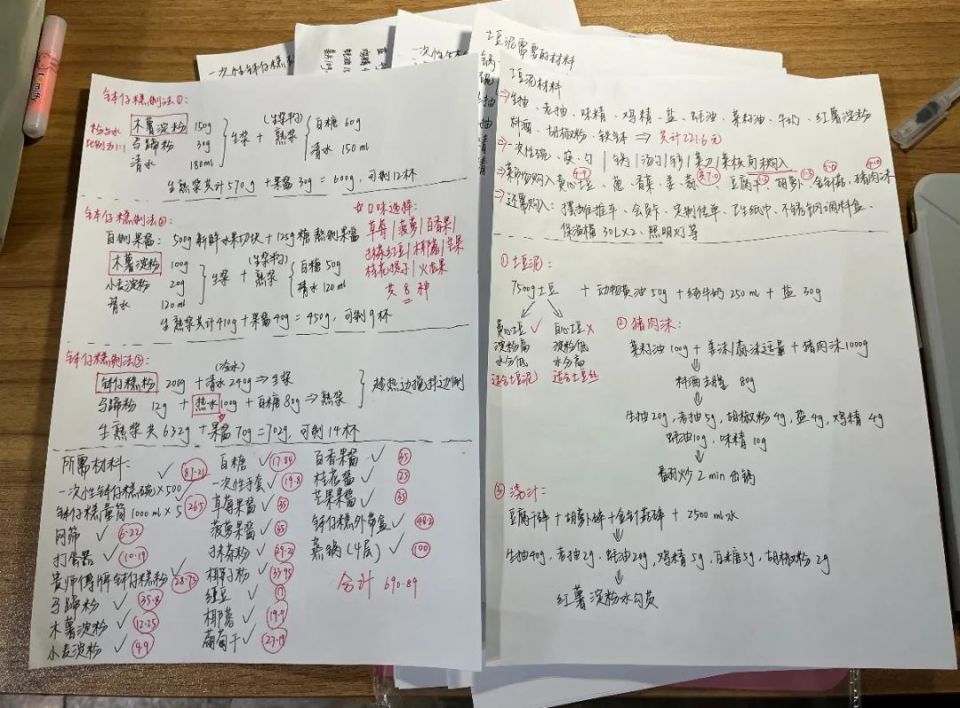 一次性钵仔糕
土豆泥需要的材料
钵仔糕制法①:
粉与水
比例为1:1
木薯淀粉 150g
马蹄粉 30g
清水 180ml
生浆 + (生浆和) 熟浆
白糖 60g
清水 150ml
生熟浆共计570g + 果酱30g = 600g, 可制12杯
钵仔糕制法②:
自制果酱: 500g 新鲜水果切块 + 125g 糖 熬制果酱
木薯淀粉 100g
小麦淀粉 20g
清水 120ml
生浆 + (生浆和) 熟浆
白糖 50g
清水 120ml
生熟浆共计410g + 果酱40g = 450g, 可制9杯
口味选择:
草莓|菠萝|百香果|
抹茶红豆|椰蓉|芒果
桂花|提子|火龙果
共8种
钵仔糕制法③:
钵仔糕粉 200g + (冷水) 清水240g ⇒ 生浆
马蹄粉 12g + 热水100g + 白糖80g ⇒ 熟浆
趁热边搅拌边倒
生熟浆共632g + 果酱70g = 702g, 可制14杯
所需材料:
一次性钵仔糕碗×500 ✓ 87.21
钵仔糕量筒1000ml×5 ✓ 26.5
网筛 ✓ 6.22
打蛋器 ✓ 10.19
贵师傅牌钵仔糕粉 ✓ 28.73
马蹄粉 ✓ 35.8
木薯淀粉 ✓ 12.25
小麦淀粉 ✓ 9.9
白糖 ✓ 17.84
一次性手套 ✓ 19.8
草莓果酱 ✓ 35
菠萝果酱 ✓ 35
抹茶粉 ✓ 29.21
椰子粉 ✓ 33.95
红豆 ✓ 17
椰蓉 ✓ 19.9
葡萄干 ✓ 27.19
百香果酱 ✓ 45
桂花酱 ✓ 23
芒果果酱 ✓ 35
钵仔糕外带盒 ✓ 48.2
蒸锅(4层) ✓ 100
合计 690.89
土豆泥材料
⇒生抽、老抽、味精、鸡精、盐、蚝油、菜籽油、牛奶、红薯淀粉
料酒、胡椒粉、铁锅 ⇒ 共计221.6元
⇒一次性碗、筷、勺|锅|汤勺|锅铲|菜刀|菜板 可未购入
⇒菜市场购入 黄心土豆、葱、香菜、姜、蒜、豆腐干、胡萝卜、金针菇、猪肉沫
⇒还需购入: 摆摊推车、会员卡、定制传单、卫生纸巾、不锈钢调料盒、
保温桶30L×2、照明灯等
①土豆泥:
7500g土豆 + 动物黄油50g + 纯牛奶250ml + 盐30g
黄心土豆 ✓
淀粉高
水分低
适合土豆泥
白心土豆 ×
淀粉低
水分高
适合土豆丝
②猪肉沫:
菜籽油100g + 姜沫|蒜沫适量 + 猪肉沫1000g
料酒去腥 80g
生抽20g, 老抽5g, 胡椒粉4g, 盐4g, 鸡精4g
蚝油10g, 味精10g
翻炒2min出锅
③汤汁:
豆腐干碎 + 胡萝卜碎 + 金针菇碎 + 2500ml水
生抽40g, 老抽2g, 蚝油20g, 鸡精5g, 白糖5g, 胡椒粉2g
红薯淀粉水勾芡